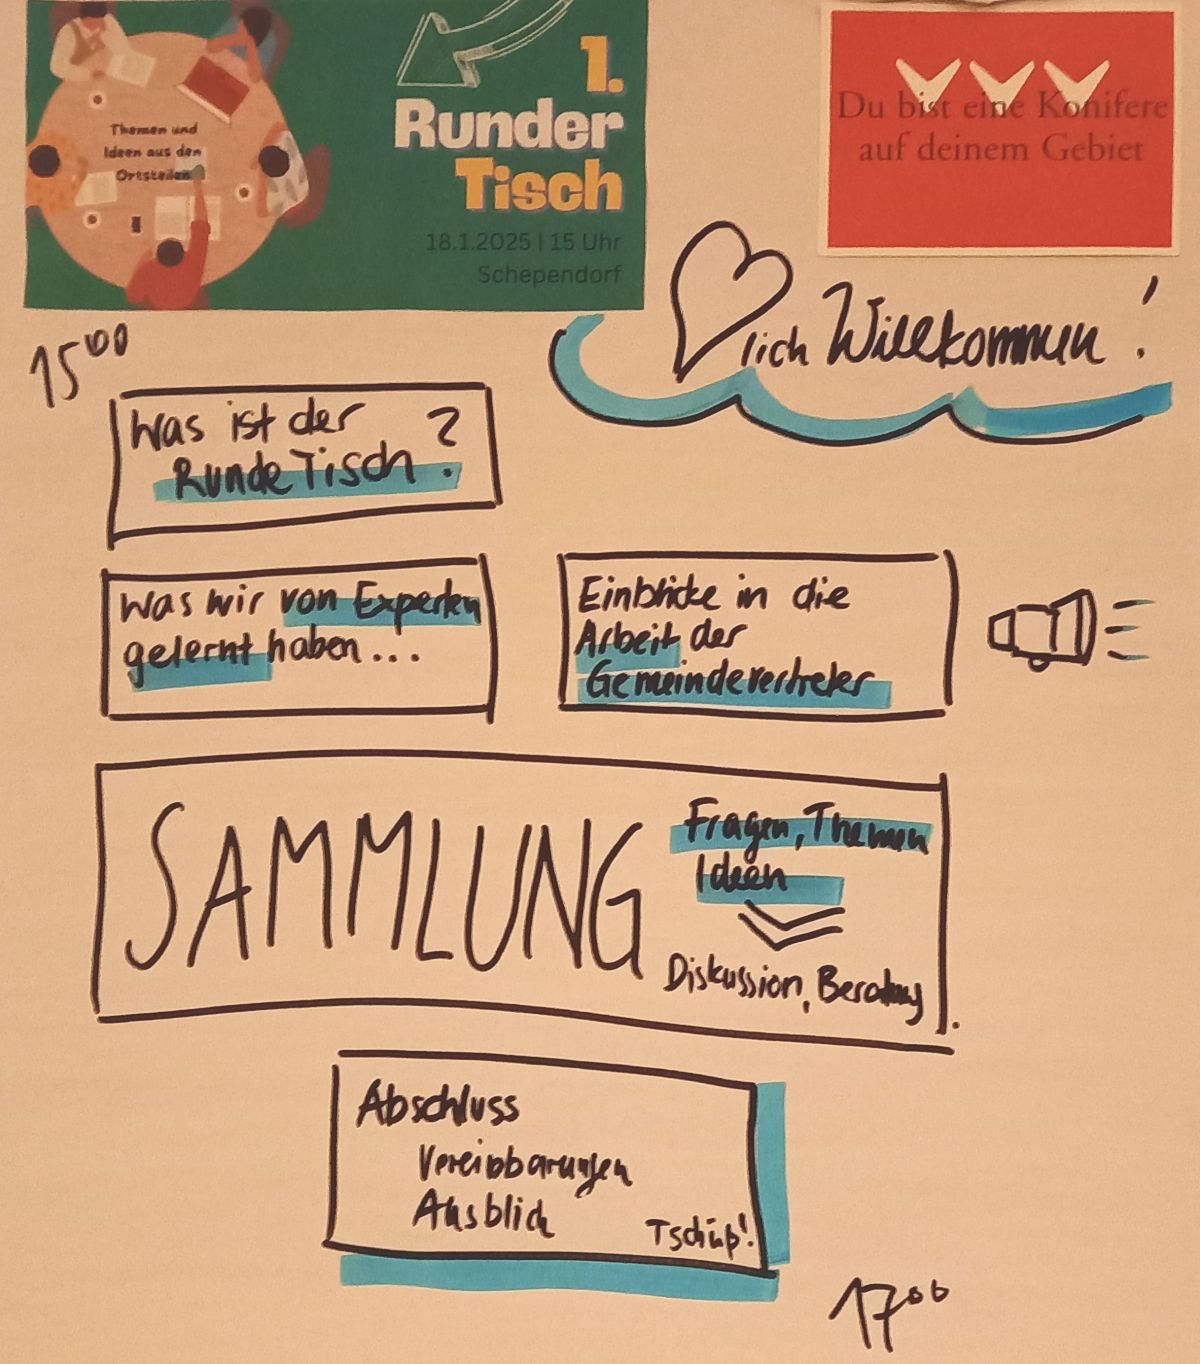 Themen und
Ideen aus den
Ortsteilen
1.
Runder
Tisch
18.1.2025 | 15 Uhr
Schependorf
Du bist eine Konifere
auf deinem Gebiet
lich Willkommen!
15⁰⁰
Was ist der
Runde Tisch?
Was wir von Experten
gelernt haben...
Einblicke in die
Arbeit der
Gemeindevertreter
SAMMLUNG
Fragen, Themen
Ideen
Diskussion, Beratung
Abschluss
Vereinbarungen
Ausblick
Tschüß!
17⁰⁰